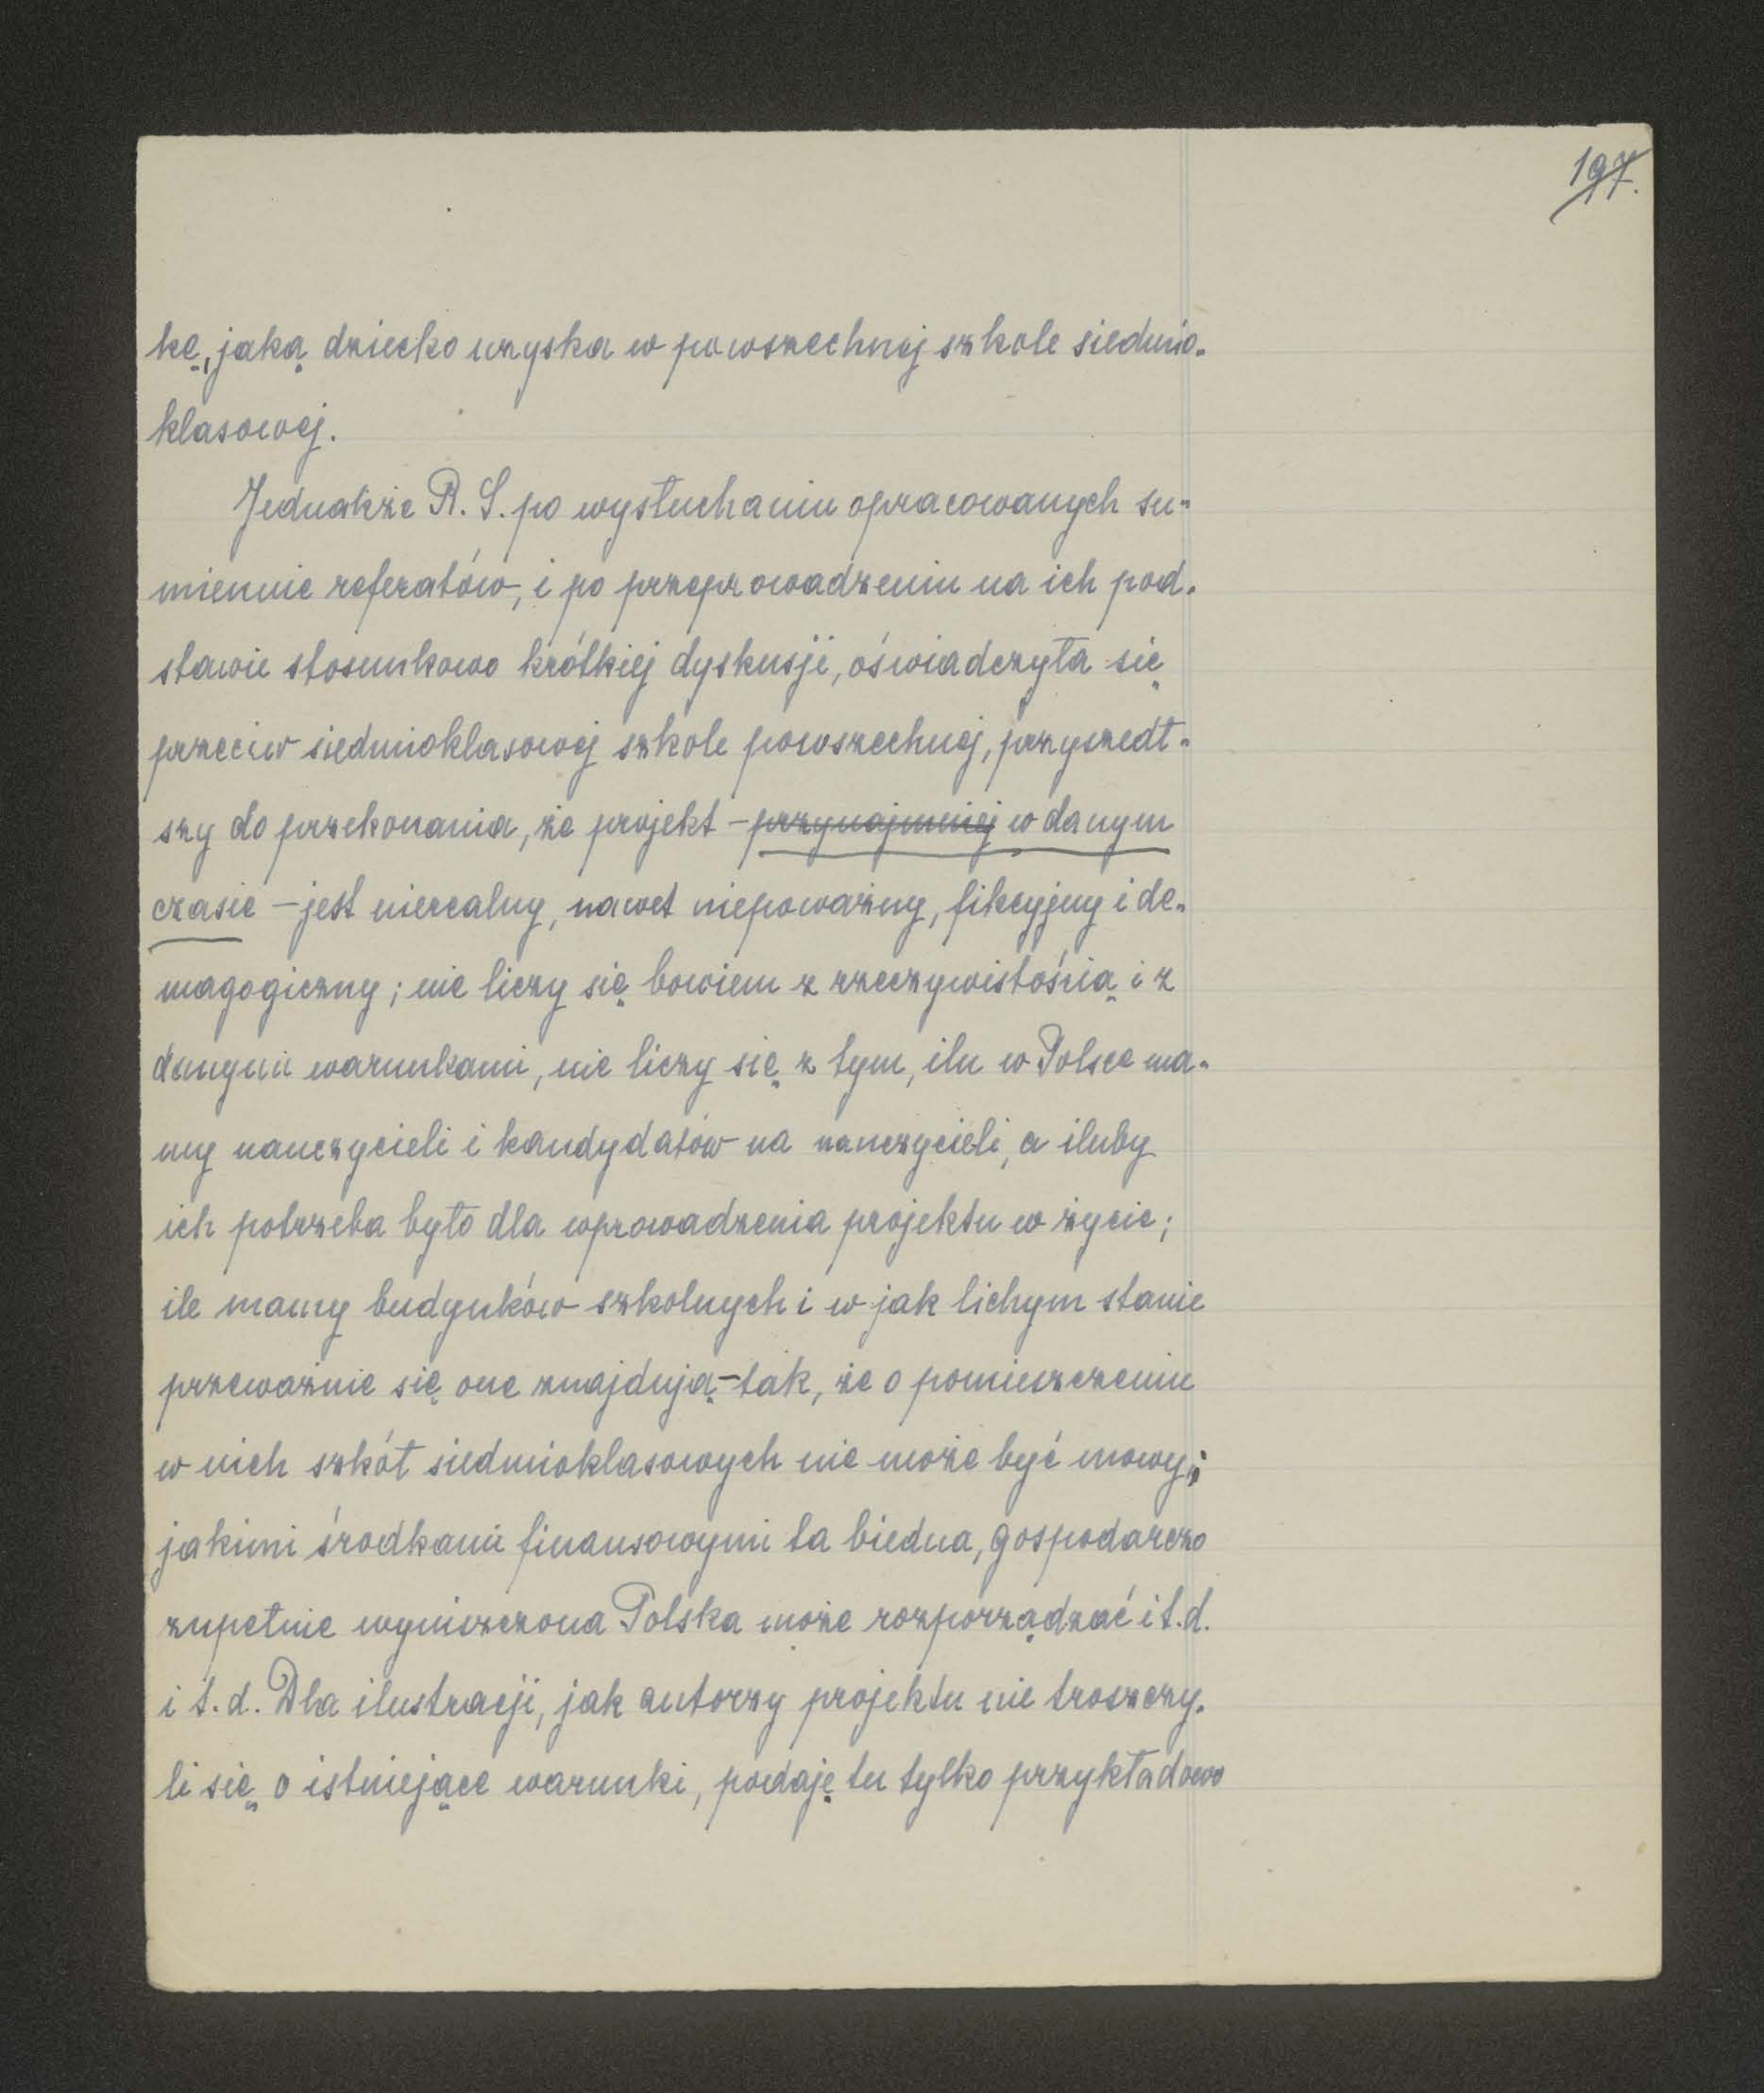 197.
kę, jaką dziecko uzyska w powszechnej szkole siedmio-
klasowej.
Jednakże R. S. po wysłuchaniu opracowanych su-
miennie referatów, i po przeprowadzeniu na ich pod-
stawie stosunkowo krótkiej dyskusji, oświadczyła się
przeciw siedmioklasowej szkole powszechnej, przyszedł-
szy do przekonania, że projekt - przynajmniej w danym
czasie - jest nierealny, nawet niepoważny, fikcyjny i de-
magogiczny; nie liczy się bowiem z rzeczywistośnią i z
danymi warunkami, nie liczy się z tym, ilu w Polsce ma-
my nauczycieli i kandydatów na nauczycieli, a iluby
ich potrzeba było dla wprowadzenia projektu w życie;
ile mamy budynków szkolnych i w jak lichym stanie
przeważnie się one znajdują - tak, że o pomieszczeniu
w nich szkół siedmioklasowych nie może być mowy;
jakimi środkami finansowymi ta biedna, gospodarczo
zupełnie wyniszczona Polska może rozporządzać i t. d.
i t. d. Dla ilustracji, jak autorzy projektu nie troszczy-
li się o istniejące warunki, podaję tu tylko przykładowo